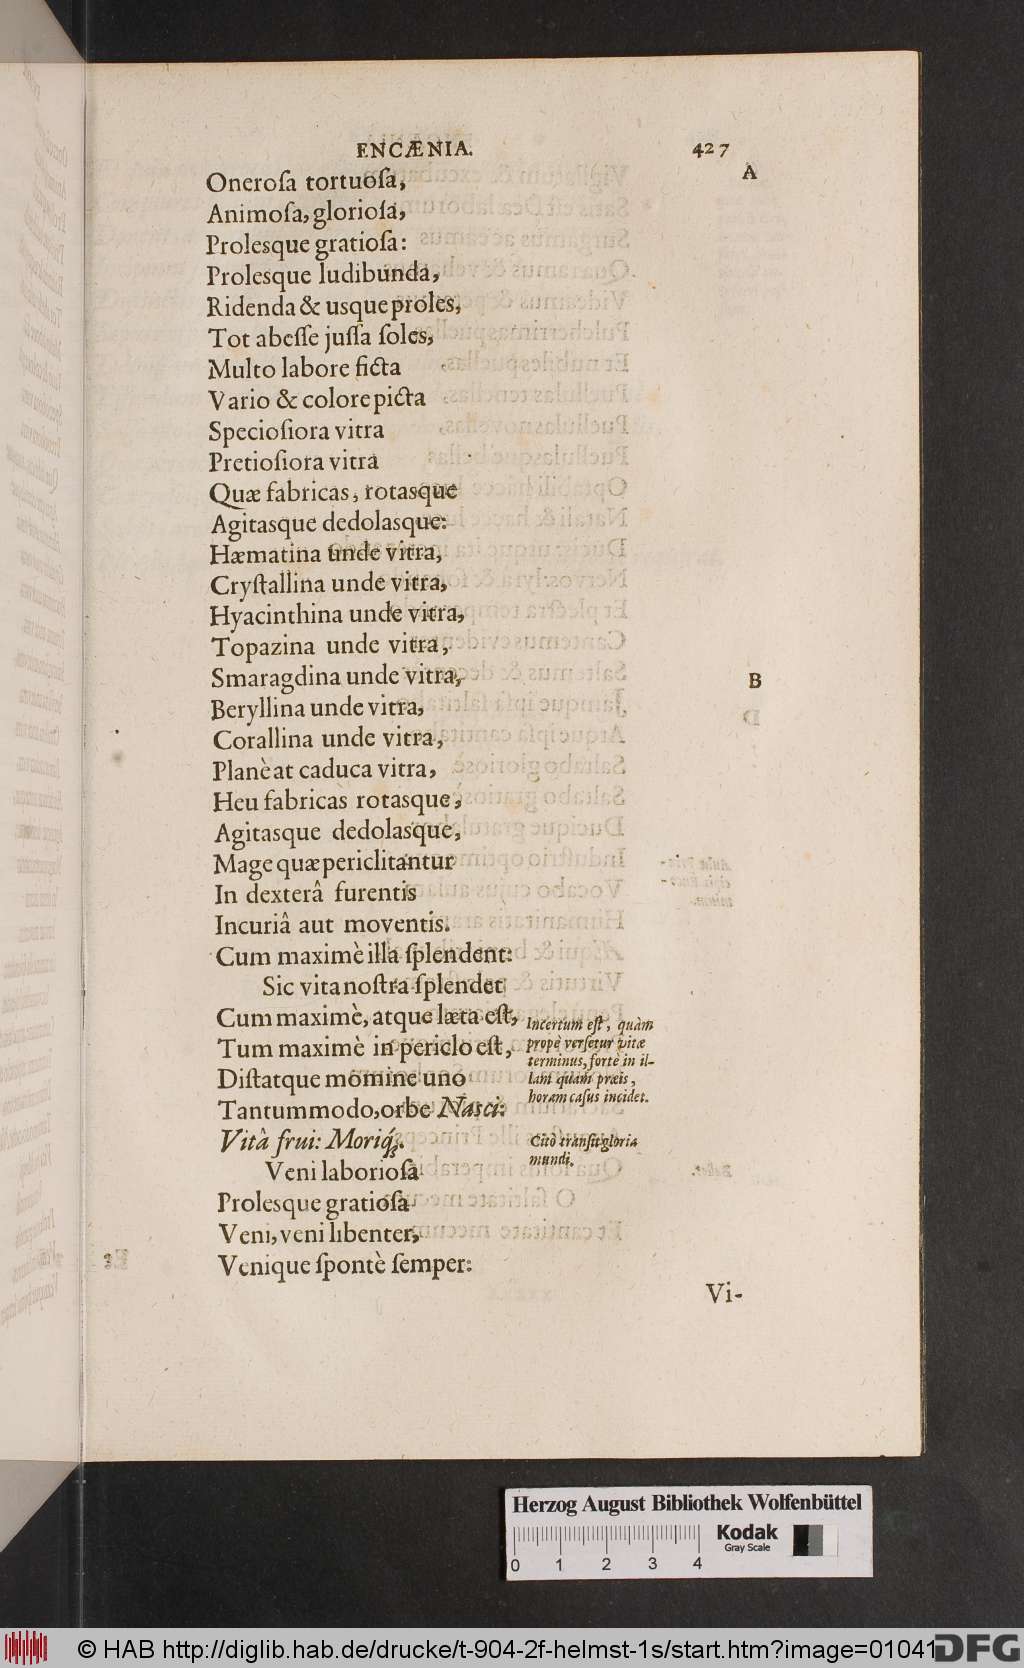 ENCÆNIA. 427
A
Oneroſa tortuoſa,
Animoſa, glorioſa,
Prolesque gratioſa:
Prolesque ludibunda,
Ridenda & usque proles,
Tot abeſſe juſſa ſoles,
Multo labore ficta
Vario & colore picta
Specioſiora vitra
Pretioſiora vitra
Quæ fabricas, rotasque
Agitasque dedolasque:
Hæmatina unde vitra,
Cryſtallina unde vitra,
Hyacinthina unde vitra,
Topazina unde vitra,
Smaragdina unde vitra,
B
Beryllina unde vitra,
Corallina unde vitra,
Planè at caduca vitra,
Heu fabricas rotasque,
Agitasque dedolasque,
Mage quæ periclitantur
In dexterâ furentis
Incuriâ aut moventis.
Cum maximè illa ſplendent:
Sic vita noſtra ſplendet
Cum maximè, atque læta eſt,
Tum maximè in periclo eſt,
Diſtatque momine uno
Tantummodo, orbe Nasci:
Vitâ frui: Moriq́;.
Veni laborioſa
Prolesque gratioſa
Veni, veni libenter,
Venique ſpontè ſemper:
Incertum eſt, quàm
propè verſetur vitæ
terminus, fortè in il-
lam quàm præis,
horam caſus incidet.
Citò tranſit gloria
mundi.
Vi-
Herzog August Bibliothek Wolfenbüttel
Kodak
Gray Scale
0 1 2 3 4
© HAB http://diglib.hab.de/drucke/t-904-2f-helmst-1s/start.htm?image=01041
DFG